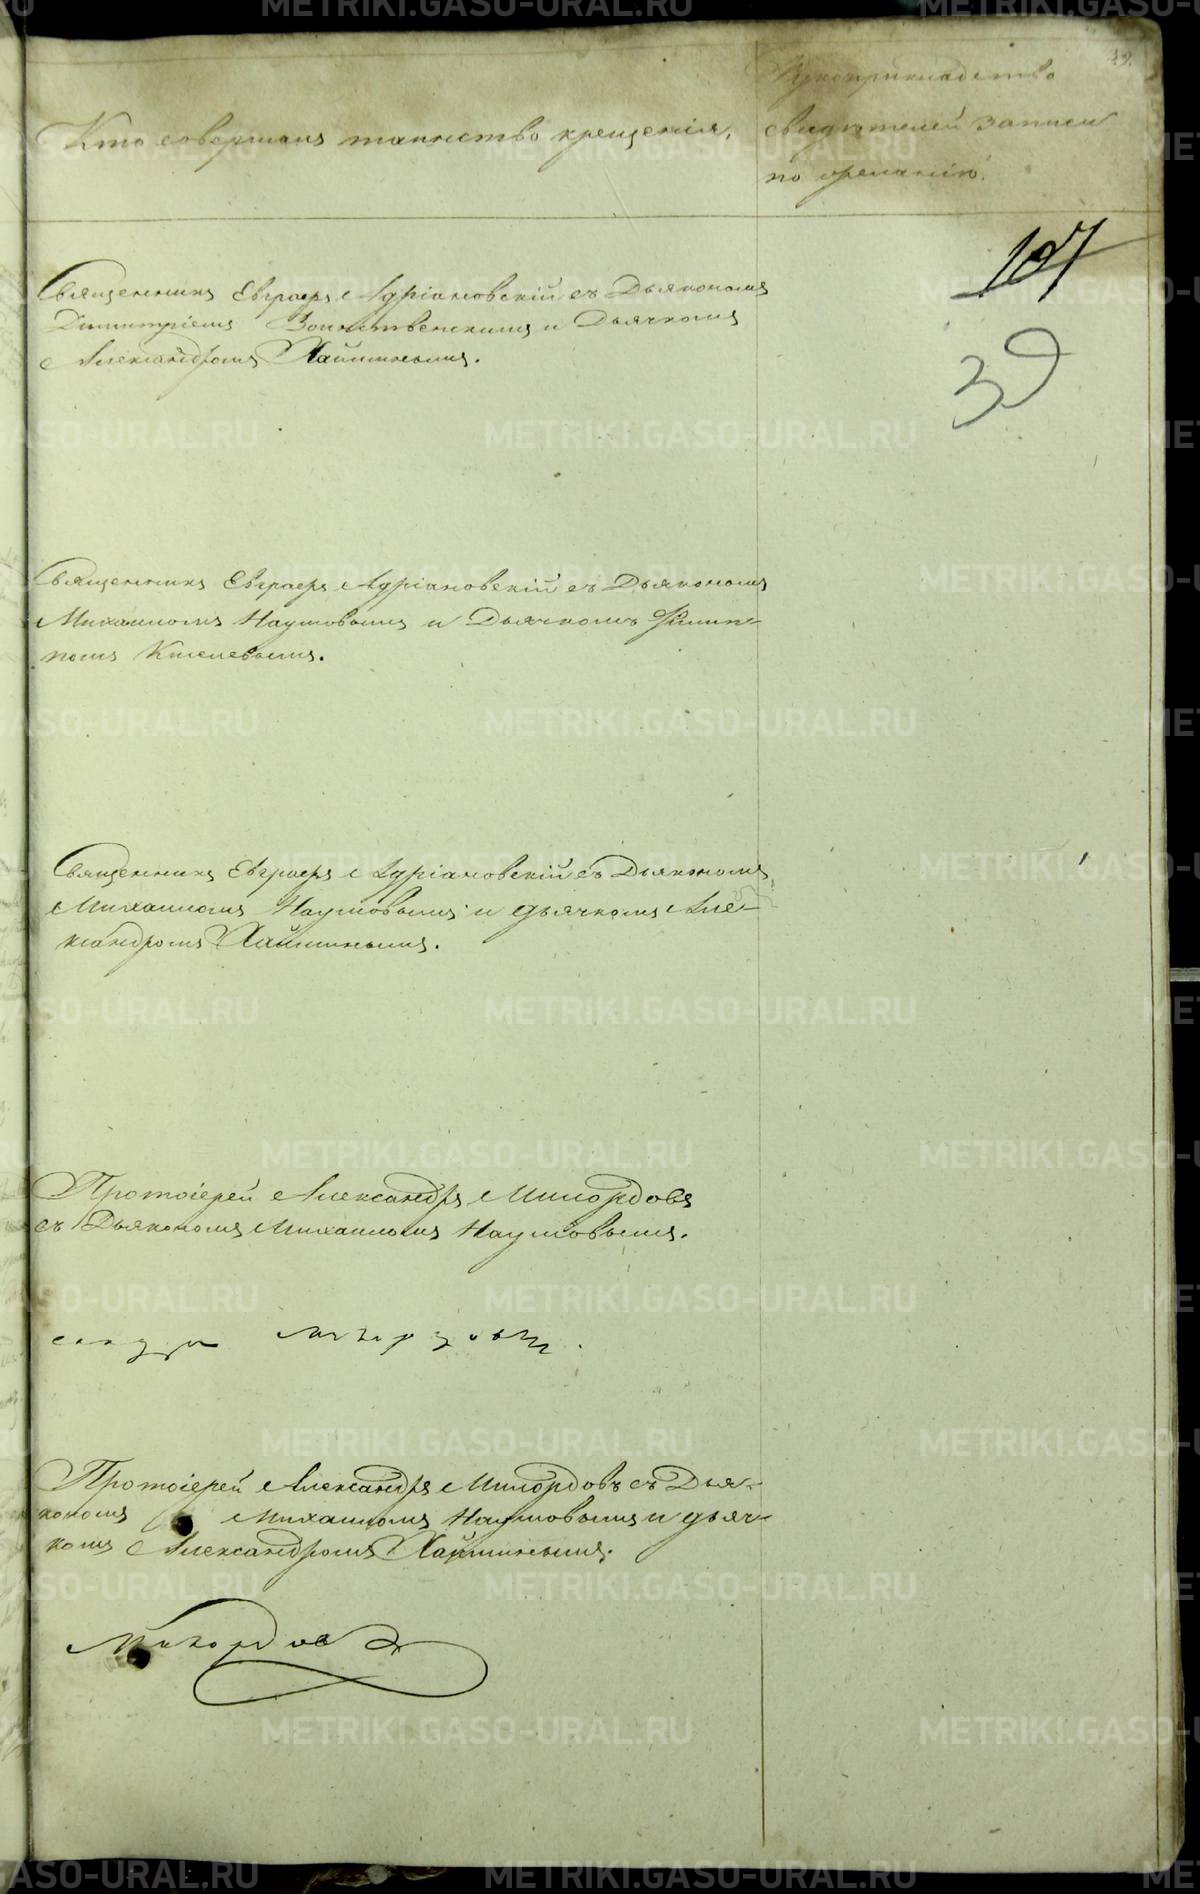 Кто совершалъ таинство крещенія.
Рукоприкладство
свидѣтелей записи
по желанію.
107
39
Священникъ Евграфъ Адріановскій съ Дьякономъ
Димитріемъ Воинственскимъ и Дьячкомъ
Александромъ Хайминымъ.
Священникъ Евграфъ Адріановскій съ Дьякономъ
Михаиломъ Наумовымъ и Дьячкомъ Филип-
помъ Киселевымъ.
Священникъ Евграфъ Адріановскій съ Дьякономъ
Михаиломъ Наумовымъ и дьячкомъ Але-
ксандромъ Хайминымъ.
Протоіерей Александръ Милордовъ
съ Дьякономъ Михаиломъ Наумовымъ.
Протоіерей Александръ Милордовъ съ Дья-
кономъ Михаиломъ Наумовымъ и дьяч-
комъ Александромъ Хайминымъ.
Милордовъ
METRIKI.GASO-URAL.RU